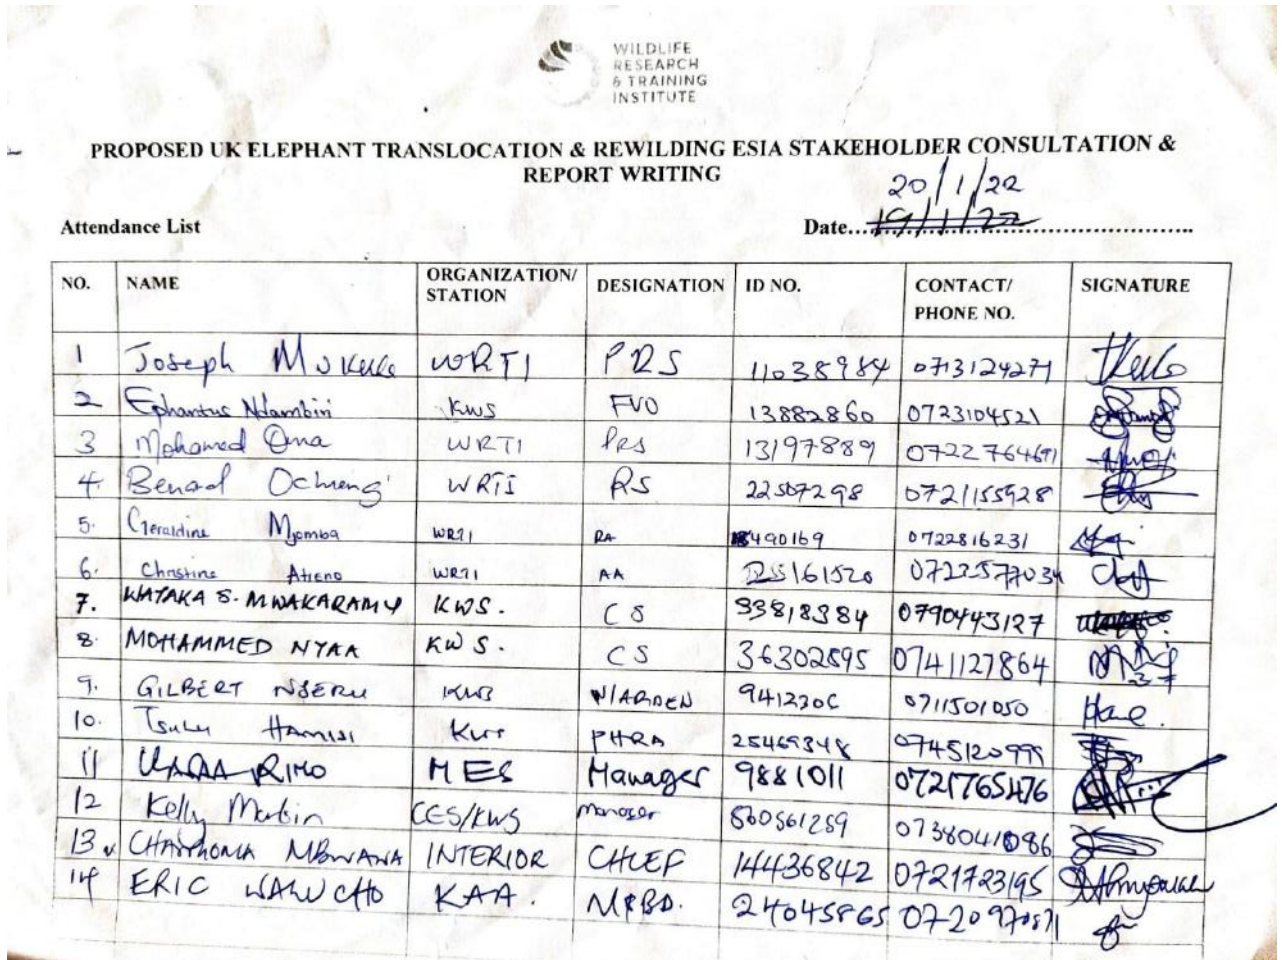 WILDLIFE
RESEARCH
& TRAINING
INSTITUTE
PROPOSED UK ELEPHANT TRANSLOCATION & REWILDING ESIA STAKEHOLDER CONSULTATION &
REPORT WRITING
20/1/22
Attendance List Date...19/1/22
NO. NAME ORGANIZATION/ STATION DESIGNATION ID NO. CONTACT/ PHONE NO. SIGNATURE
1 Joseph Mukeka WRTI PRS 11038984 0713124271
2 Ephantus Ndambiri KWS FVO 13882860 0723104521
3 Mohamed Oma WRTI PRS 13197889 0722764691
4. Benard Ochieng WRTI RS 22507298 0721155928
5. Geraldine WRTI RA 0722816231
6. Christine Atieno WRTI AA 25161520
7. WATAKA S. MWAKARAMU KWS. CS 33818384 0790443127
8. MOHAMMED NYAA KWS. CS 36302595 0741127864
9. GILBERT NJERU KWS WARDEN 9412306 0711501050
10. HAMISI KWS 25469348
11 MES Manager 9881011 0721765476
12 Kelly Martin CES/KWS manager 07380410086
13 MBWANA INTERIOR CHIEF 14436842 0721723195
14 ERIC WALUCHO KAA. 24045865